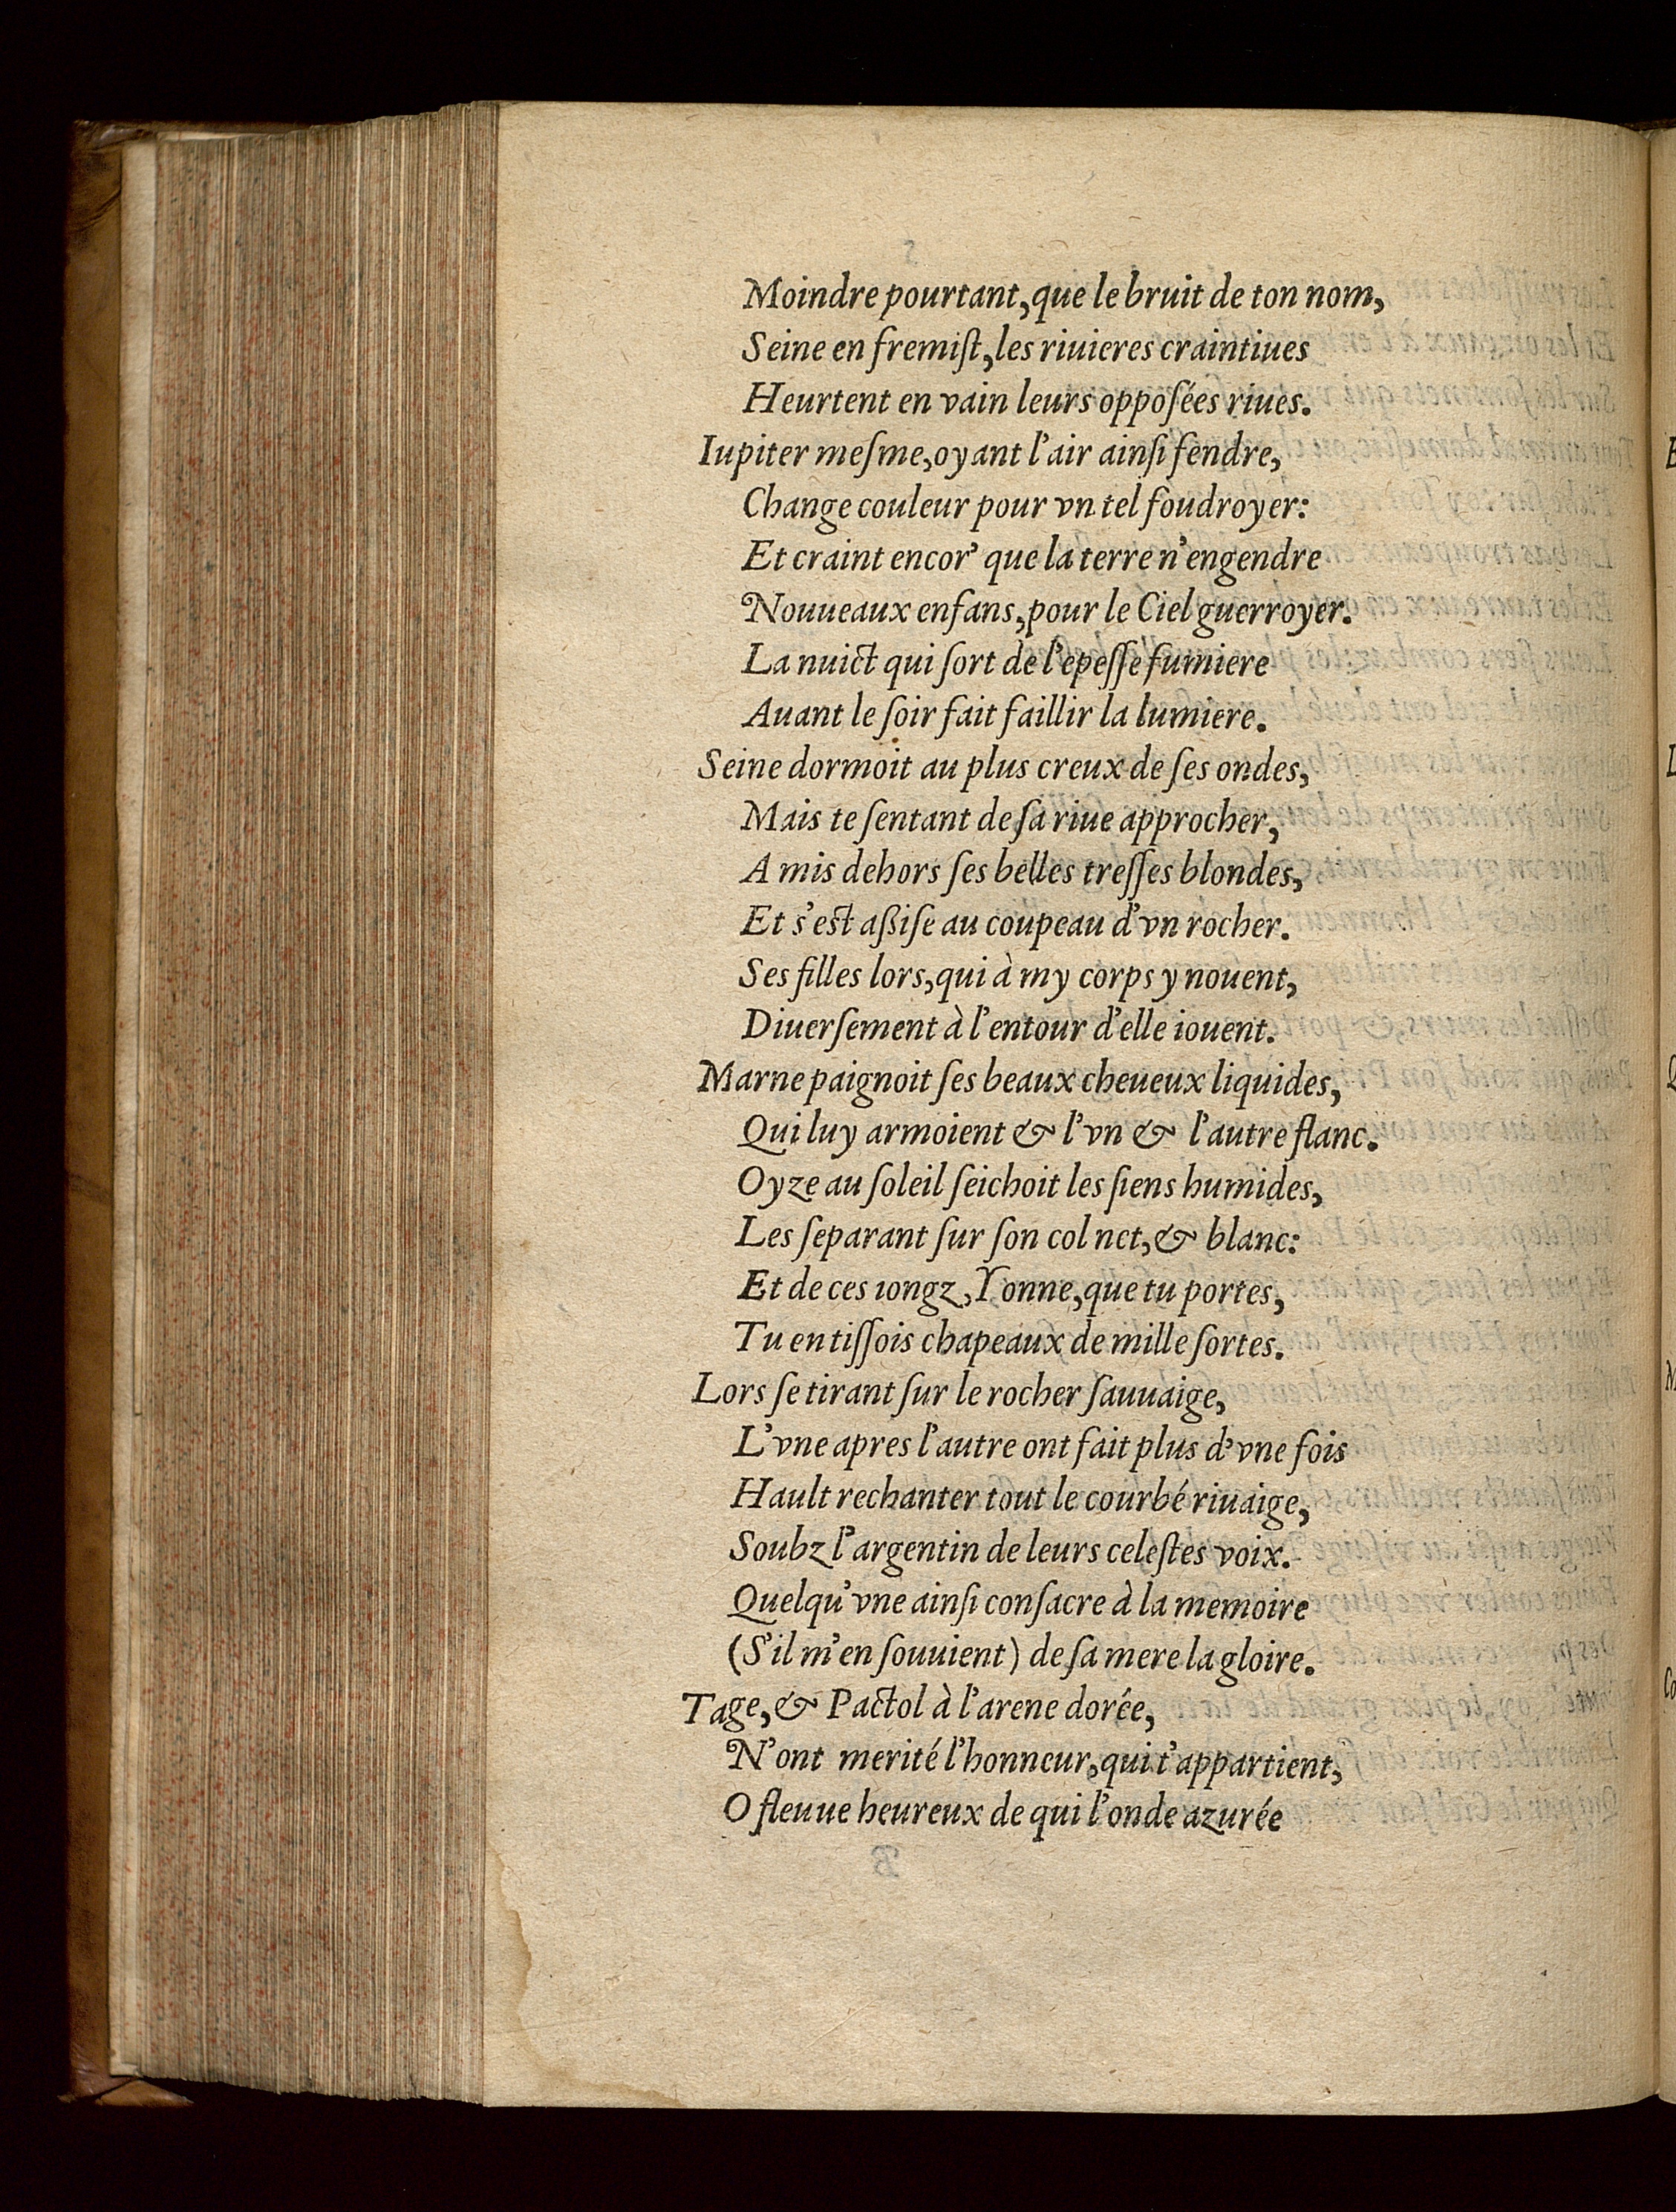 Moindre pourtant, que le bruit de ton nom,
Seine en fremiſt, les riuieres craintiues
Heurtent en vain leurs oppoſées riues.
Iupiter meſme, oyant l'air ainſi fendre,
Change couleur pour vn tel foudroyer:
Et craint encor' que la terre n'engendre
Nouueaux enfans, pour le Ciel guerroyer.
La nuict qui ſort de l'epeſſe fumiere
Auant le ſoir fait faillir la lumiere.
Seine dormoit au plus creux de ſes ondes,
Mais te ſentant de ſa riue approcher,
A mis dehors ſes belles treſſes blondes,
Et s'est aßiſe au coupeau d'vn rocher.
Ses filles lors, qui à my corps y nouent,
Diuerſement à l'entour d'elle iouent.
Marne paignoit ſes beaux cheueux liquides,
Qui luy armoient & l'vn & l'autre flanc.
Oyze au ſoleil ſeichoit les ſiens humides,
Les ſeparant ſur ſon col net, & blanc:
Et de ces iongz, Yonne, que tu portes,
Tu en tiſſois chapeaux de mille ſortes.
Lors ſe tirant ſur le rocher ſauuaige,
L'vne apres l'autre ont fait plus d'vne fois
Hault rechanter tout le courbé riuaige,
Soubz l'argentin de leurs celeſtes voix.
Quelqu'vne ainſi conſacre à la memoire
(S'il m'en ſouuient) de ſa mere la gloire.
Tage, & Pactol à l'arene dorée,
N'ont merité l'honneur, qui t'appartient,
O fleuue heureux de qui l'onde azurée